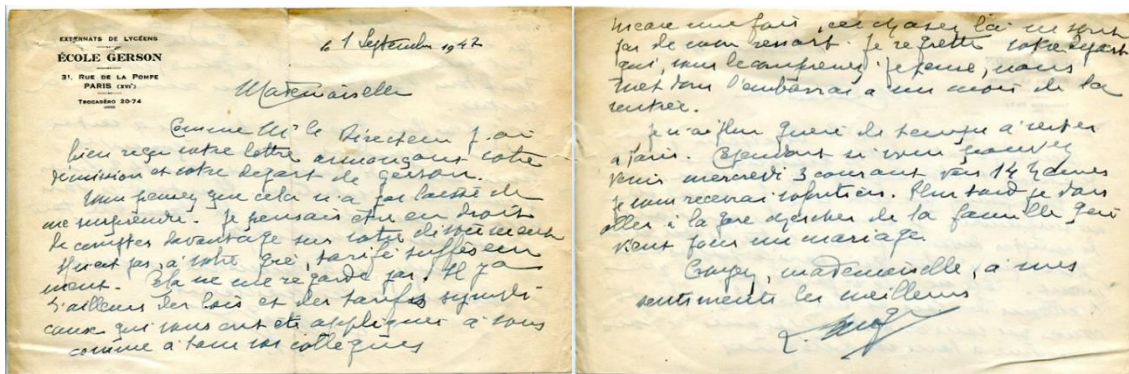 EXTERNATS DE LYCÉENS
ÉCOLE GERSON
31, RUE DE LA POMPE
PARIS (XVIᵉ)
TROCADÉRO 20-74
le 1 Septembre 1942
Mademoiselle
Comme Mr le Directeur j'ai
bien reçu votre lettre annonçant votre
démission et votre départ de Gerson.
Vous pensez que cela n'a pas laissé de
me surprendre. Je pensais être en droit
de compter davantage sur votre dévouement
pas, à votre gré, tarifé suffisam
ment. Cela ne me regarde pas. Il y a
d'ailleurs des lois et des tarifs syndi
caux qui vous ont été appliqués à vous
comme à tous vos collègues
encore une fois, ces choses là ne sont
pas de mon ressort. Je regrette votre départ
qui, vous le comprenez je pense, nous
met dans l'embarras à un mois de la
rentrée.
Je n'ai plus guère de temps à rester
à Paris. Cependant si vous pouvez
venir mercredi 3 courant vers 14 heures
je vous recevrai volontiers. Plus tard je dois
aller à la gare chercher de la famille qui
vient pour un mariage.
Croyez, mademoiselle, à mes
sentiments les meilleurs